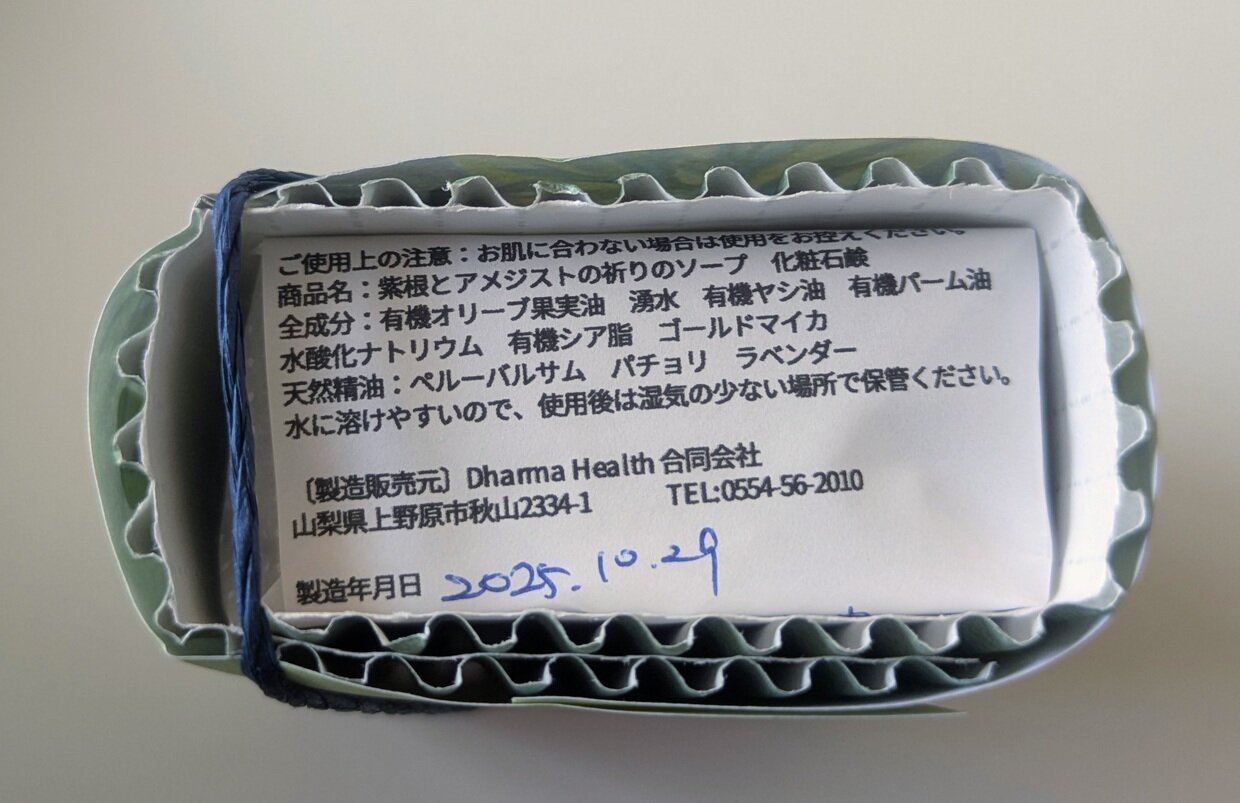 ご使用上の注意：お肌に合わない場合は使用をお控えください。
商品名：紫根とアメジストの祈りのソープ　化粧石鹸
全成分：有機オリーブ果実油　湧水　有機ヤシ油　有機パーム油
水酸化ナトリウム　有機シア脂　ゴールドマイカ
天然精油：ペルーバルサム　パチョリ　ラベンダー
水に溶けやすいので、使用後は湿気の少ない場所で保管ください。
〔製造販売元〕Dharma Health 合同会社
山梨県上野原市秋山2334-1　TEL:0554-56-2010
製造年月日 2025.10.29